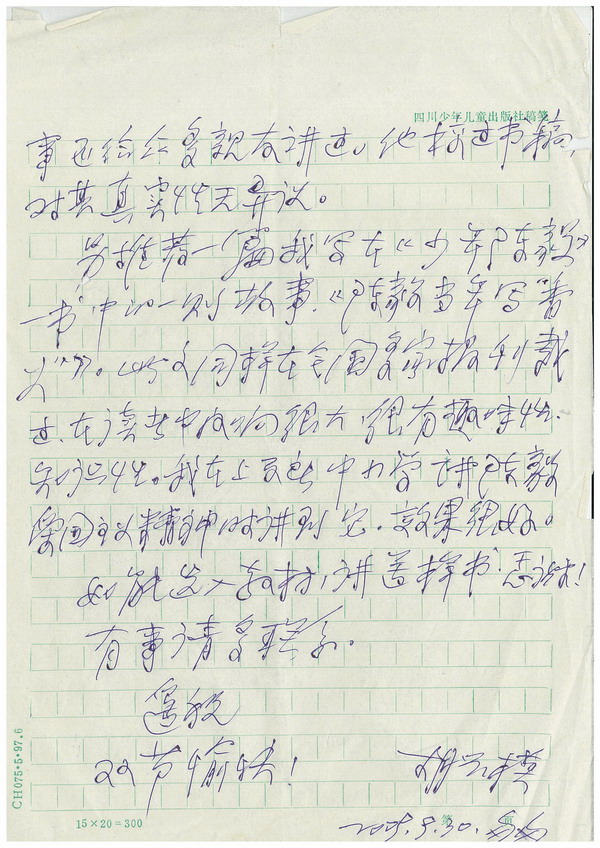 四川少年儿童出版社稿笺
事还给众多亲友讲过。他核过书稿,
对其真实性无异议。
另推荐一篇我写在《少年陈毅》
一书中的一则故事.《陈毅当年写“著
文”》。此文同样在全国多家报刊载
过.在读者中反响很大.很有趣味性.
知识性。我在上百所中小学讲陈毅
爱国主义精神时讲到它.效果很好。
如能选入教材,请寄样书.恳谢!
有事请多联系。
遥祝
双节愉快!
胡兴模
CH075·5·97.6
15×20=300
第 页
9.30.